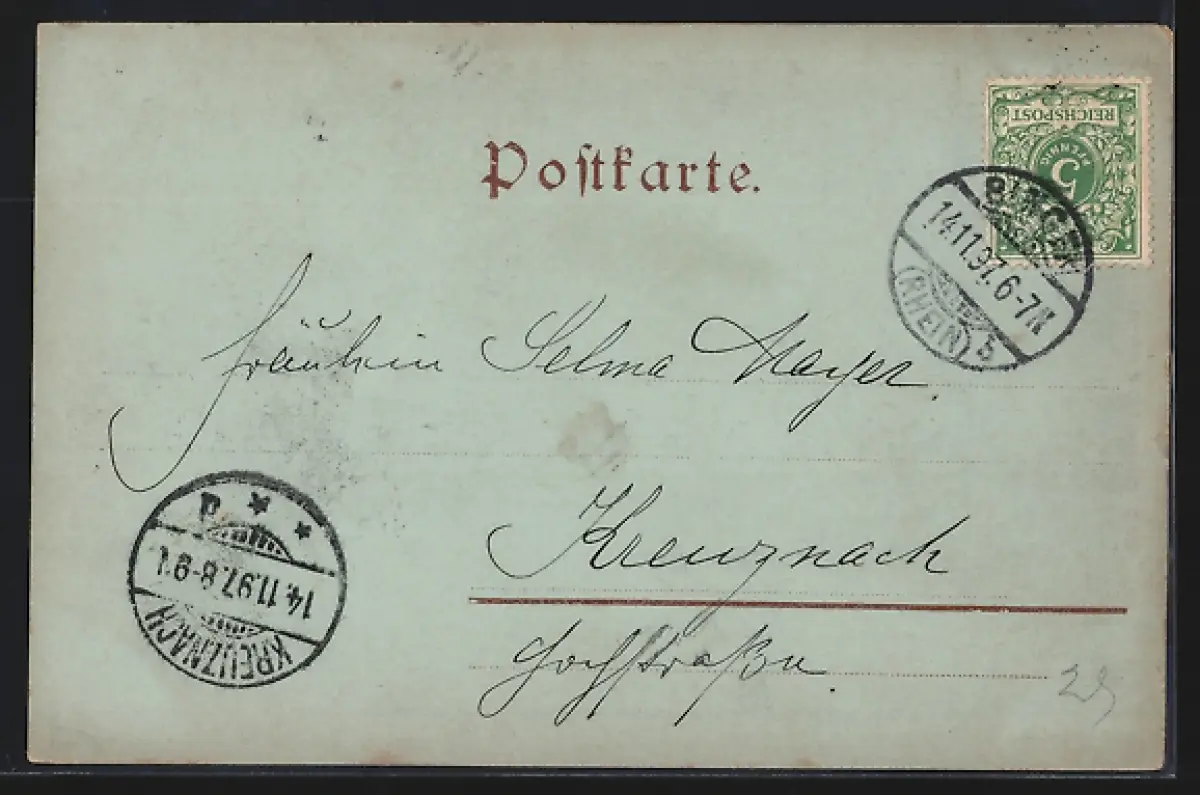 Postkarte.
REICHSPOST
5
PFENNIG
BINGEN
14.11.97. 6-7N
(RHEIN) 5
Fräulein Selma Mayer.
Kreuznach
Hochstraße.
KREUZNACH
14.11.97. 8-9N
* * P
25